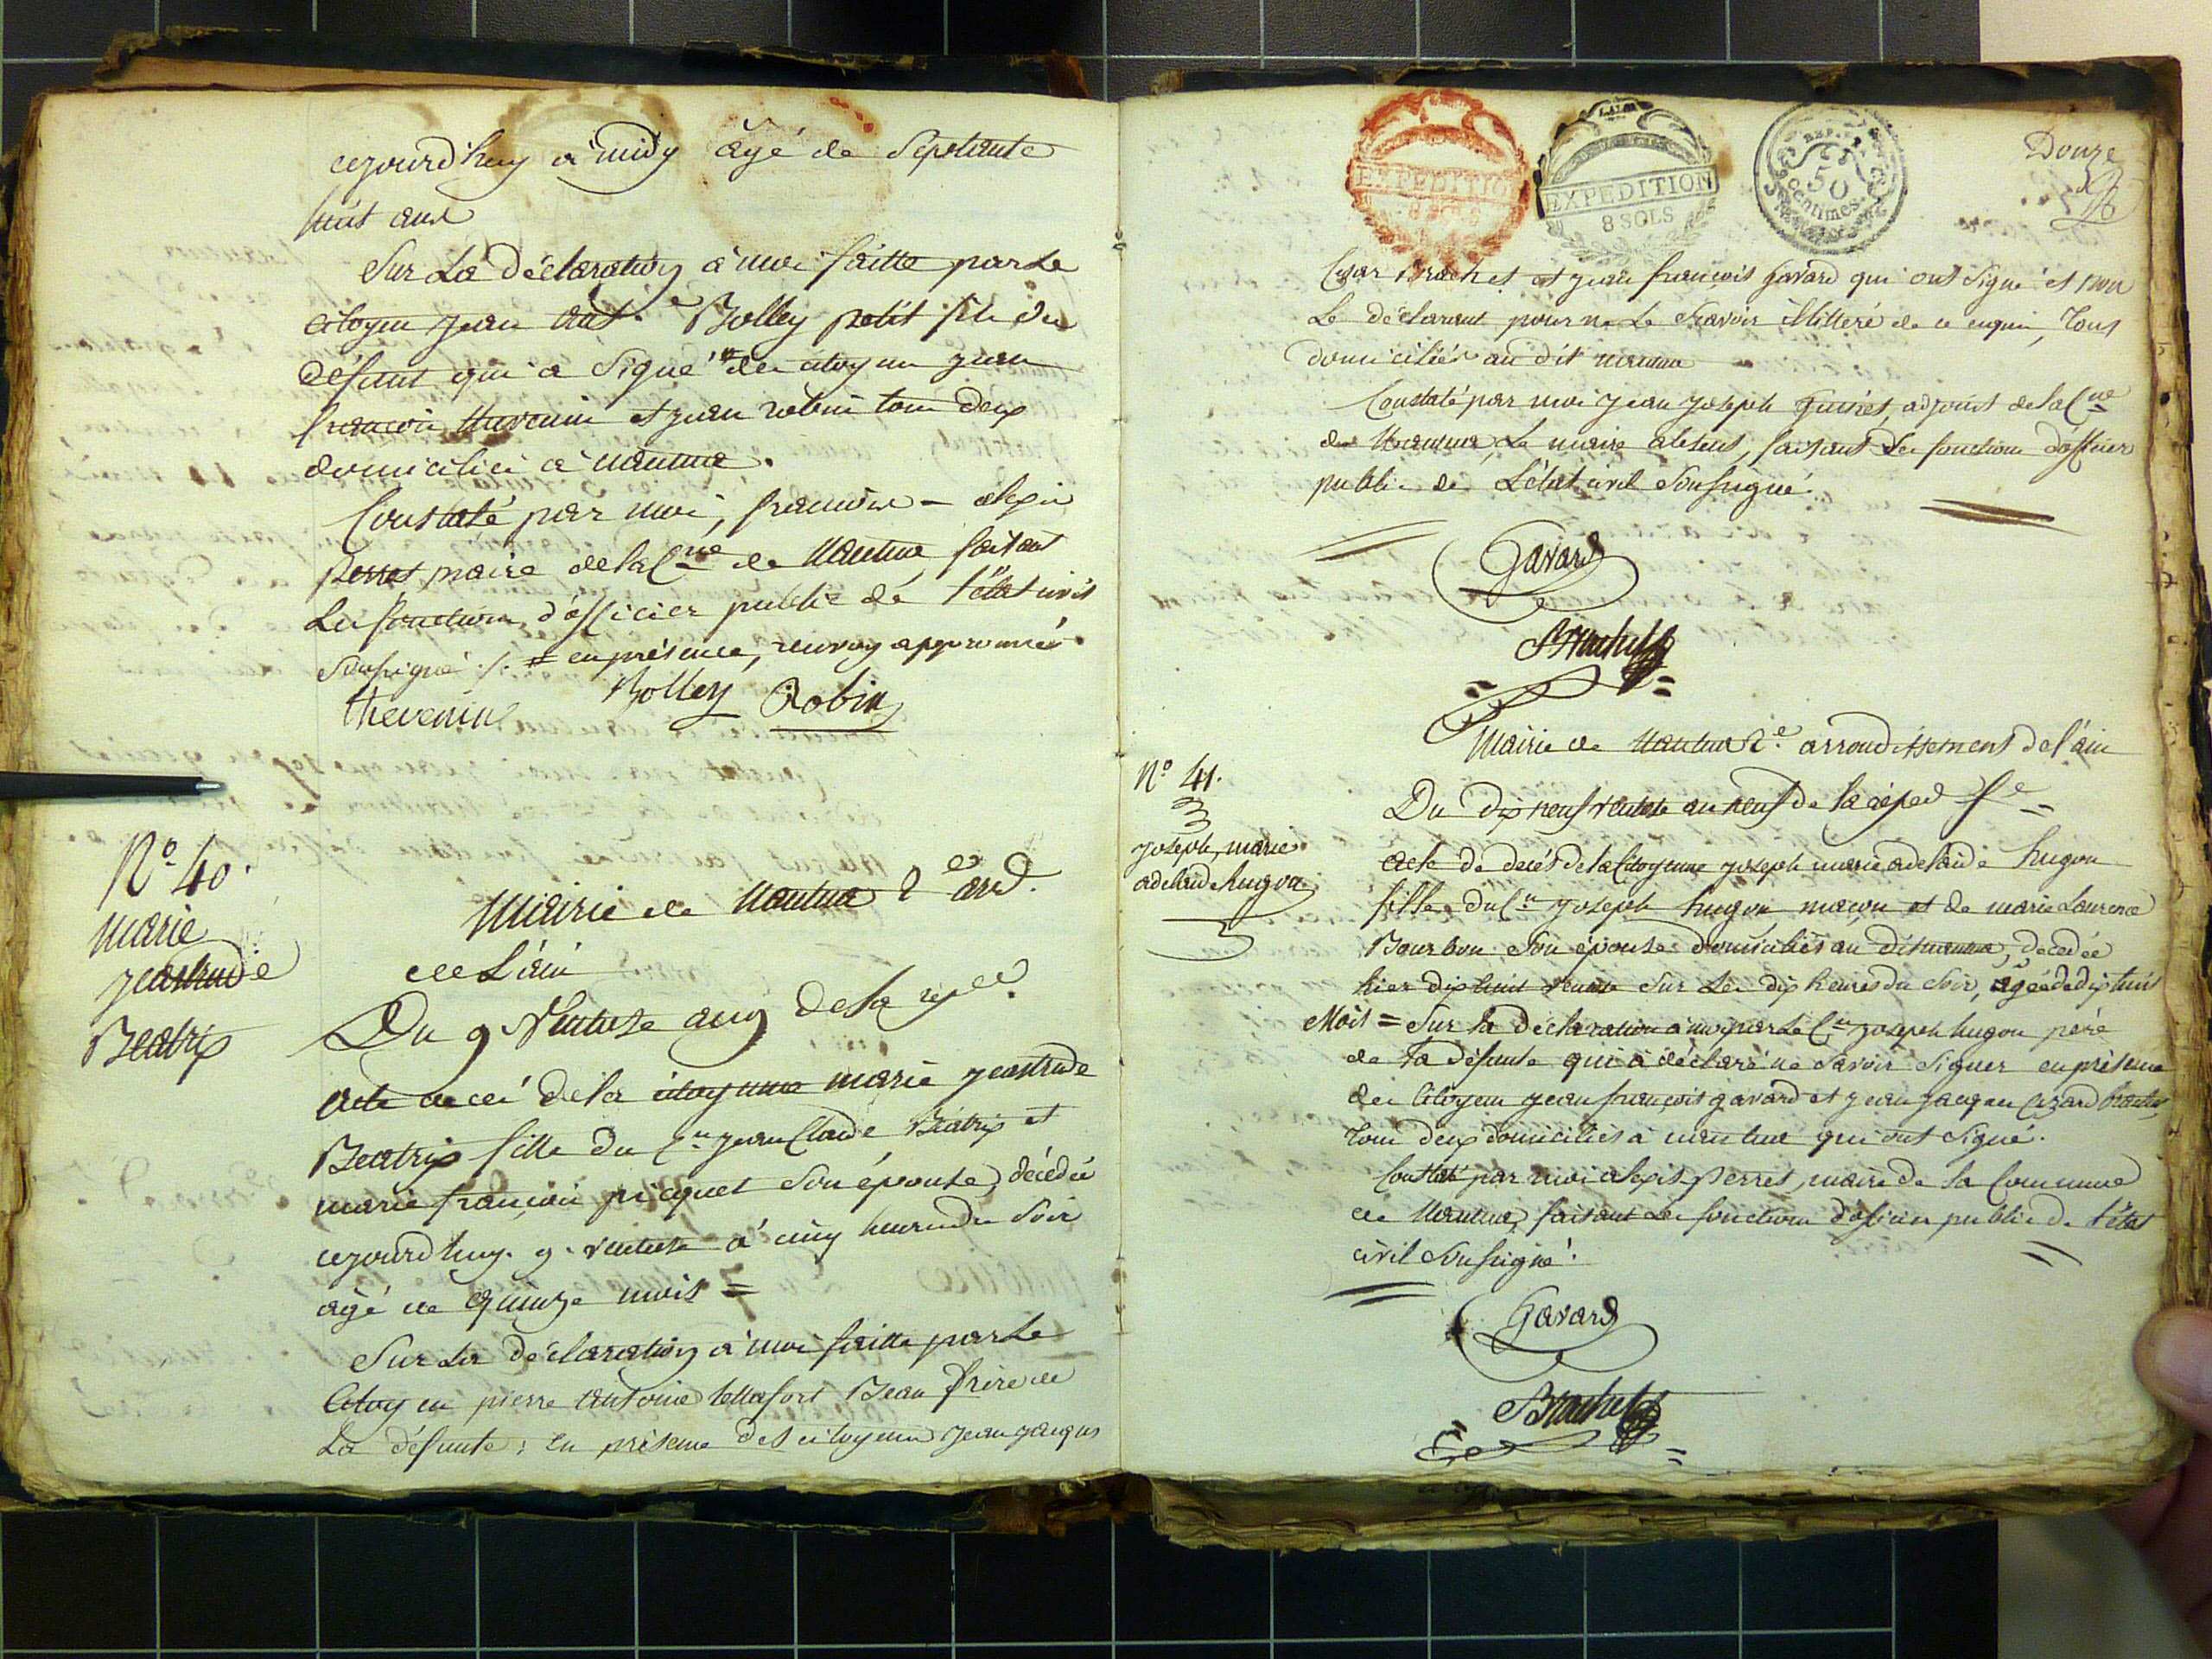 cejourd'huy à midy âgé de Septante
huit ans
Sur La déclaration à moi faitte par Le
citoyen jean ant.e Bolley petit fils du
défunt qui a Signé # des citoyens jean
françois thevenin et jean robin tous deux
domiciliés à nantua.
Constaté par moi, françois - alexis
perret maire de la C.ne de Nantua, faisant
Les fonctions d'officier public de l'état civil
Soussigné ./. # en présence, renvoy approuvé
thevenin Bolley Robin
N.o 40.
marie
jeartrude
Beatrix
Mairie de Nantua 2e ard.
de L'ain
Du 9 Ventose an 9 de la rep.
acte de décé de la citoyenne marie jeartrude
Beatrix fille du C.n jean Claude Béatrix et
marie françoise picquet Son épouse, décédée
cejourd'huy. 9. ventose à cinq heures du Soir
agé de quinze mois =
Sur La déclaration à moi faitte par Le
Citoyen pierre antoine Beau frère de
La défunte; en présence des citoyens jean jaques
EXPEDITION
8 SOLS
L'AIN
EXPEDITION
8 SOLS
REP. F.
50
centimes.
Douze
Cesar Brachet et jean françois gavard qui ont Signé et non
Le déclarant pour ne Le Scavoir illitéré de ce enquis, Tous
domiciliés au dit nantua
Constaté par moi jean joseph adjoint de la C.ne
de Nantua, Le maire absent, faisant Les fonctions d'officier
public de L'état civil Soussigné.
Gavard
Brachet
Mairie de Nantua 2.e arrondissement de l'ain
N.o 41.
joseph, marie
adelaide hugon
Du dix neuf ventose an neuf de la répud f.e
acte de decés de la Citoyenne joseph marie adelaide hugon
fille du C.n joseph hugon maçon et de marie Laurence
Bourbon Son épouse domiciliés au dit nantua, decedée
hier dix huit ventose Sur Les dix heures du Soir, âgée de dix huit
Mois = Sur la déclaration à moi par Le C.n joseph hugon père
de la défunte qui à déclaré ne Savoir Signer en présence
des Citoyens jean françois gavard et jean jaques Cezard brachet
Tous deux domiciliés à nantua qui ont Signé.
Constaté par moi alexis perret, maire de la Commune
de Nantua, faisant Les fonctions d'officier public de l'état
civil Soussigné.
Gavard
Brachet